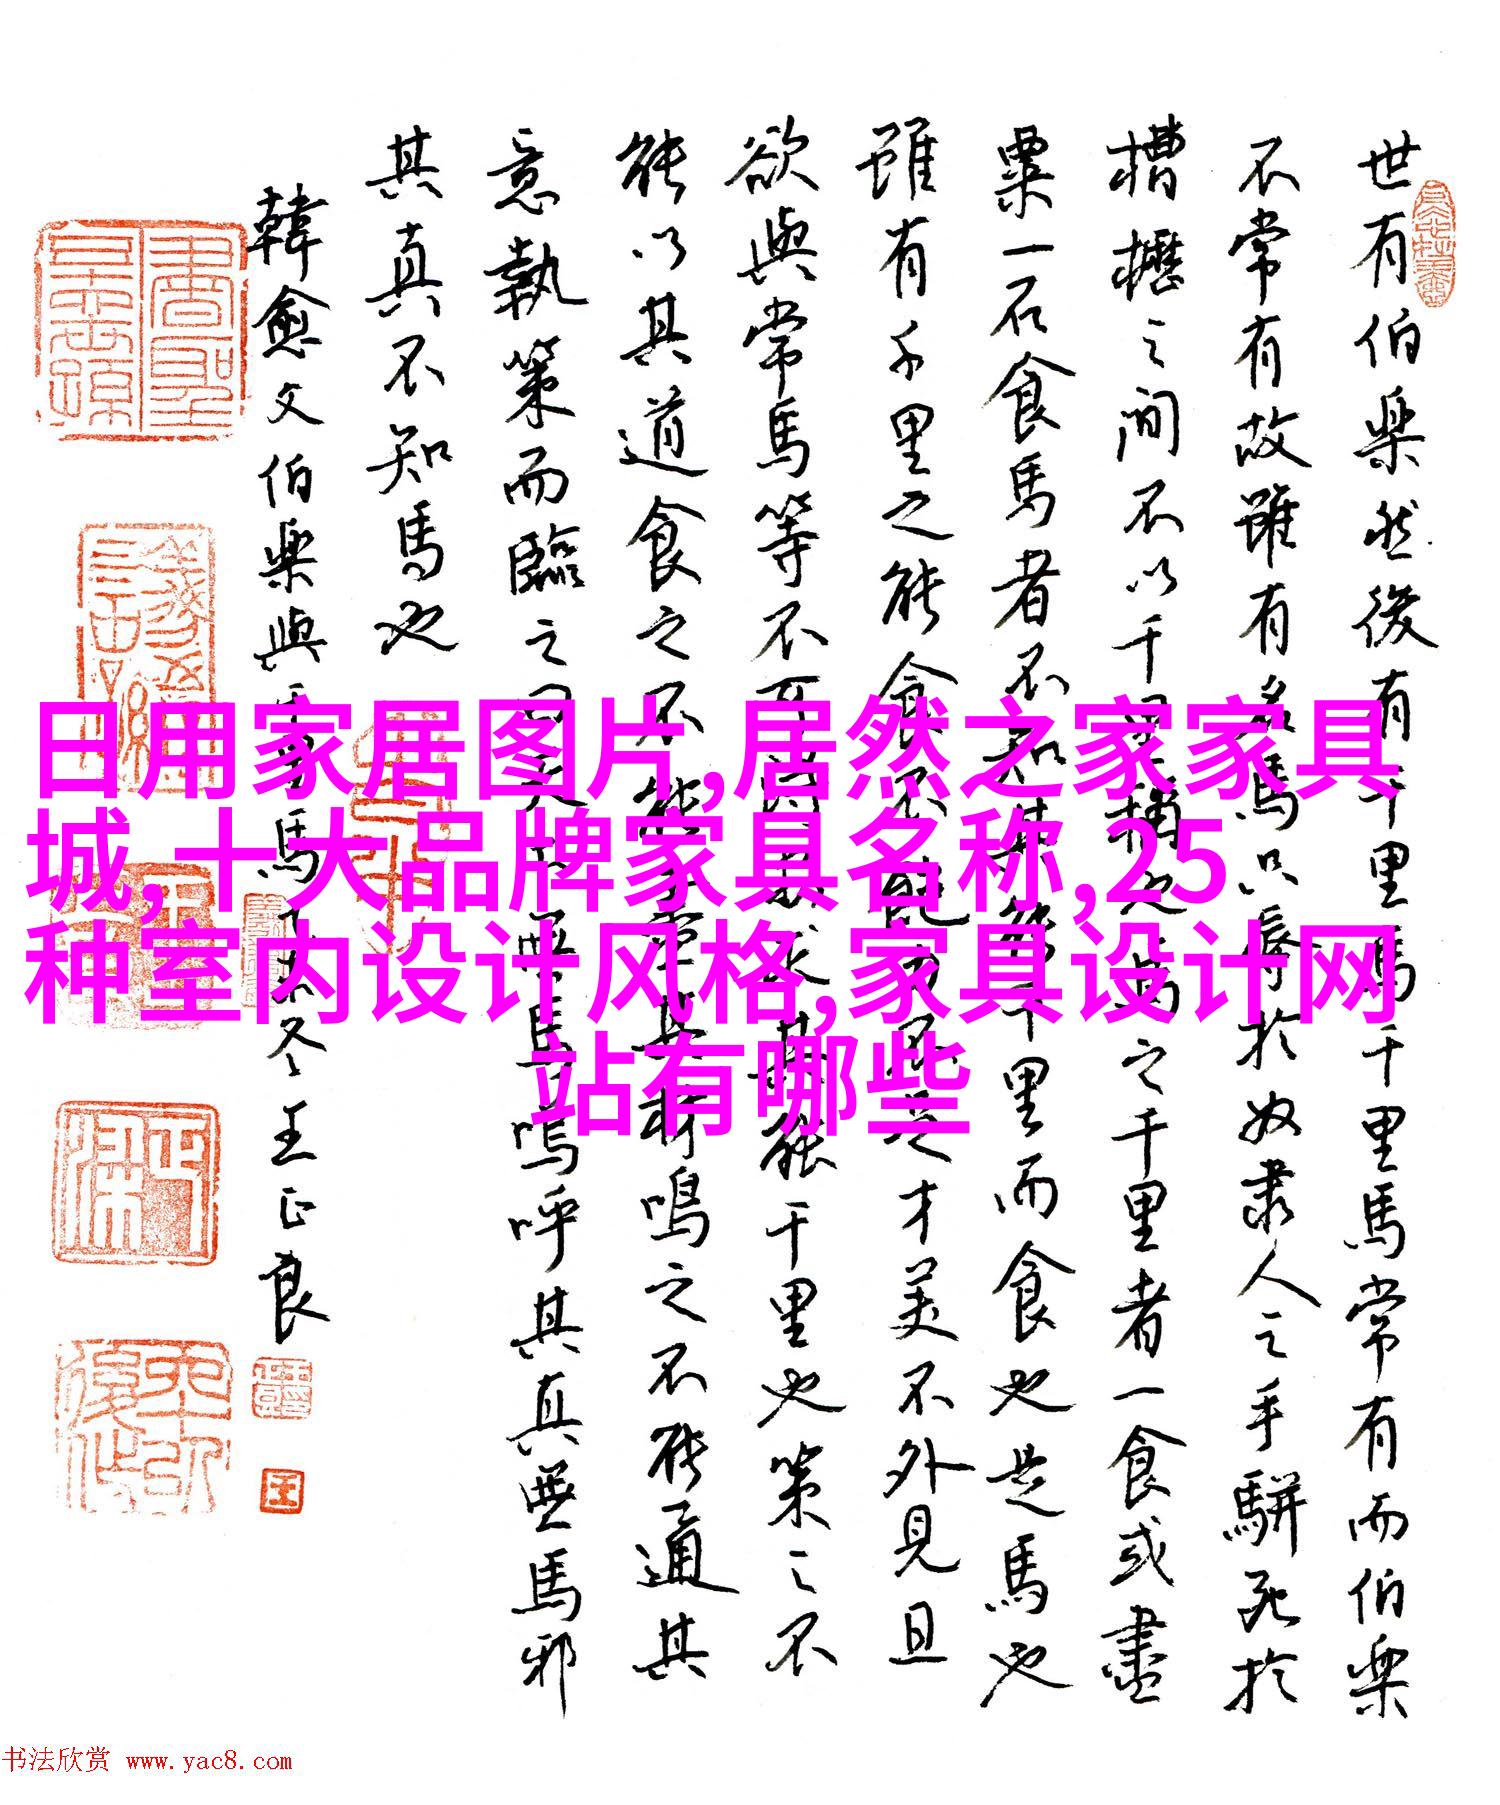 世有伯樂然後有千里馬千里馬常有而伯樂
不常有故雖有名馬只辱於奴隸人之手駢死於
槽櫪之間不以千里稱也馬之千里者一食或盡
粟一石食馬者不知其能千里而食也是馬也
雖有千里之能食不飽力不足才美不外見且
欲與常馬等不可得安求其能千里也策之不
能以其道食之不能盡其材鳴之不能通其
意執策而臨之曰天下無馬嗚呼其真無馬邪
其真不知馬也
韓愈文伯樂與千里馬冬王正良
日用家居图片,居然之家家具
城,十大品牌家具名称,25
种室内设计风格,家具设计网
站有哪些
书法欣赏 www.yac8.com